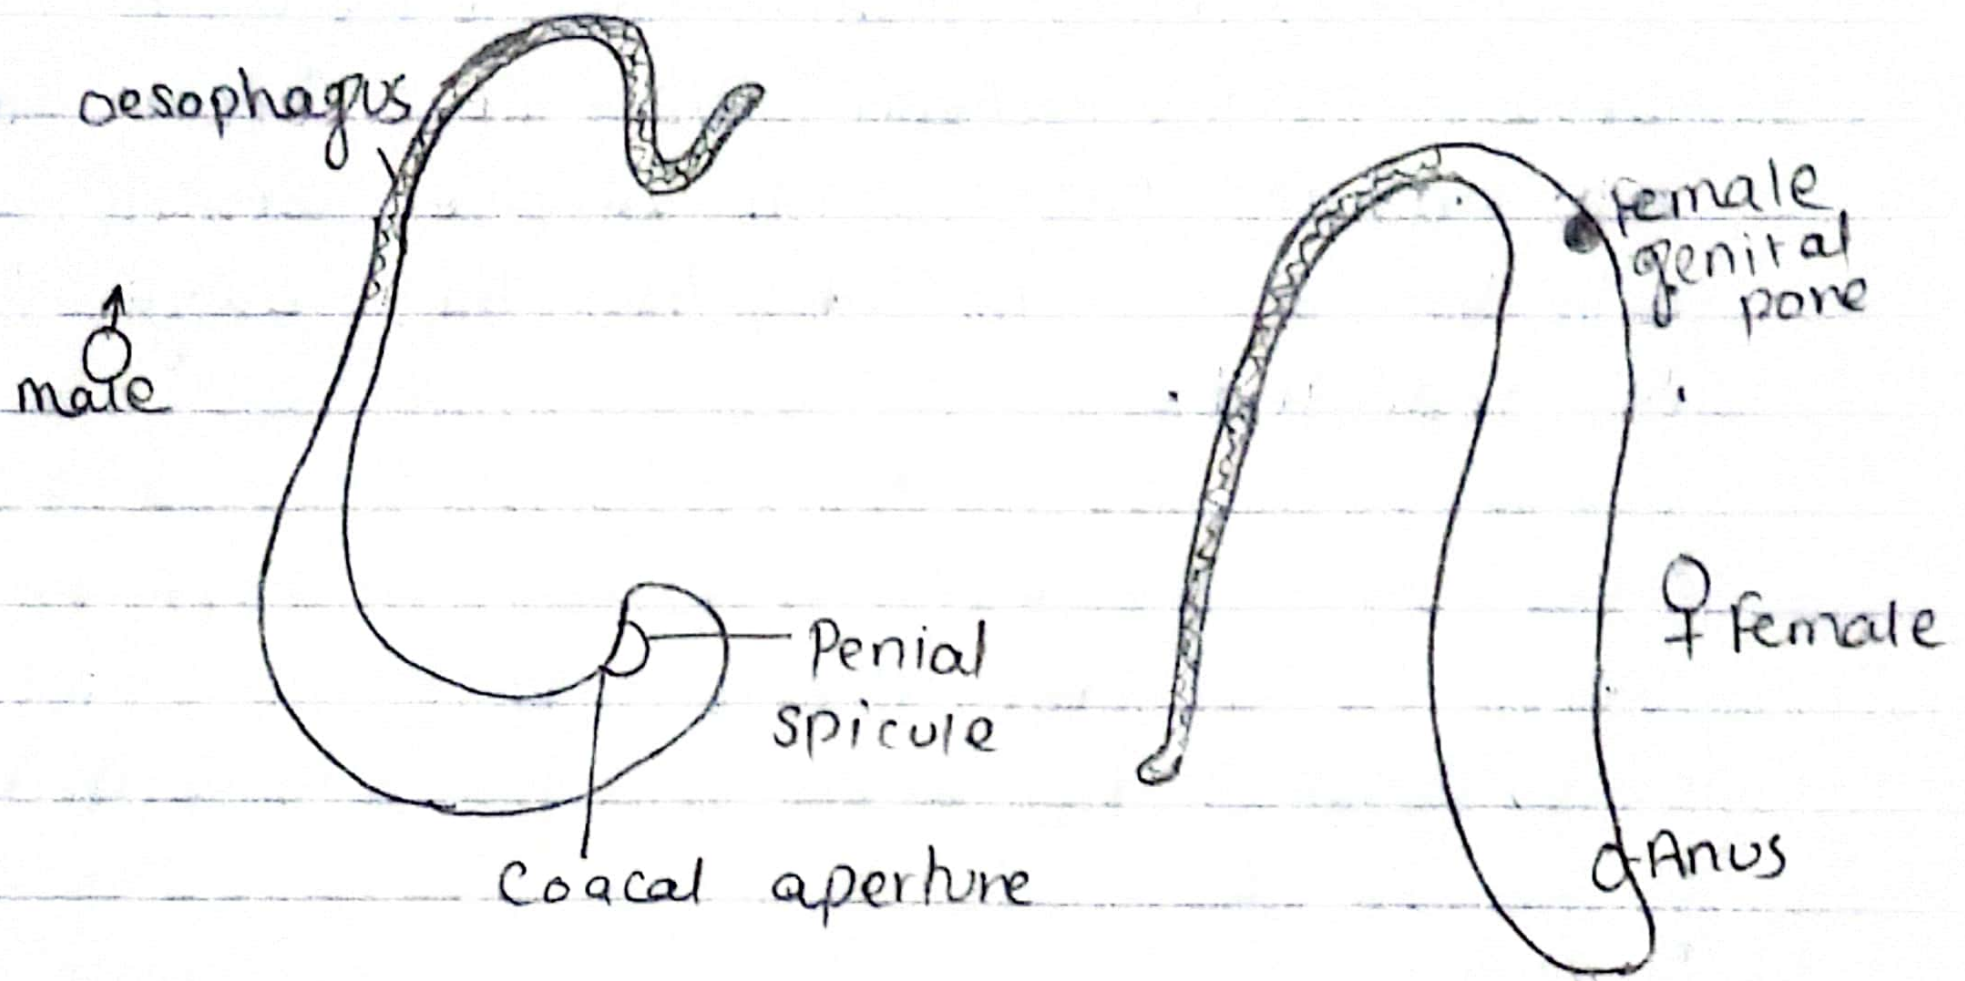 oesophagus
♂
male
Penial
spicule
Coacal aperture
female
genital
pore
♀ Female
Anus